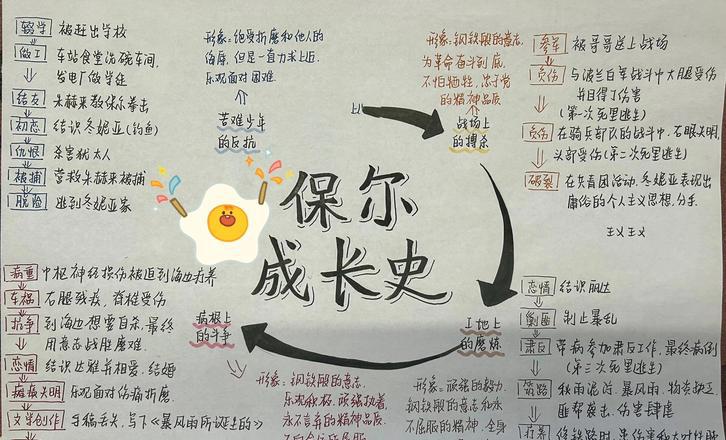 辍学 被赶出学校
做工 车站食堂洗碗车间,
发电厂做学徒
结友 朱赫来教保尔拳击
初恋 结识冬妮亚(钓鱼)
仇恨 杀害犹太人
被捕 营救朱赫来被捕
脱险 逃到冬妮亚家
形象:饱受折磨和他人的
侮辱,但是一直力求上进,
乐观面对困难
苦难少年
的反抗
形象:钢铁般的意志,
为革命奋斗到底,
不怕牺牲,忠于党
的精神品质
战场上
的搏杀
参军 被哥哥送上战场
负伤 与波兰白军战斗中大腿受伤
并且得了伤寒
(第一次死里逃生)
负伤 在骑兵部队的战斗中,右眼失明,
头部受伤(第二次死里逃生)
破裂 在共青团活动,冬妮亚表现出
庸俗的个人主义思想,分手
保尔
成长史
病重 中枢神经损伤被迫到海边疗养
车祸 右腿残疾,脊椎受伤
抗争 到海边想要自杀,最终
用意志战胜磨难
恋情 结识达雅并相爱,结婚
瘫痪失明 乐观面对伤痛折磨
文学创作 手稿丢失,写下《暴风雨所诞生的》
病榻上
的斗争
形象:钢铁般的意志,
乐观积极,顽强执着,
永不言弃的精神品质
工地上
的磨炼
形象:顽强的毅力,
钢铁般的意志和永
不屈服的精神,全身
恋情 结识丽达
剿匪 制止暴乱
肃反 带病参加肃反工作,最终病倒
(第三次死里逃生)
筑路 秋雨泥泞,暴风雨,物资缺乏
匪帮袭击,伤寒肆虐